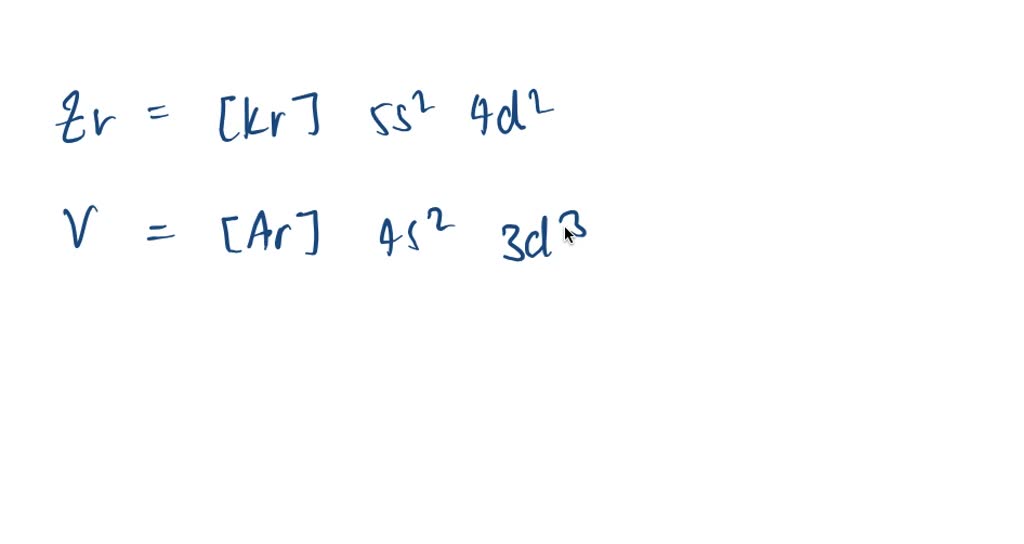 Zr = [kr] 5s² 4d²
V = [Ar] 4s² 3d³